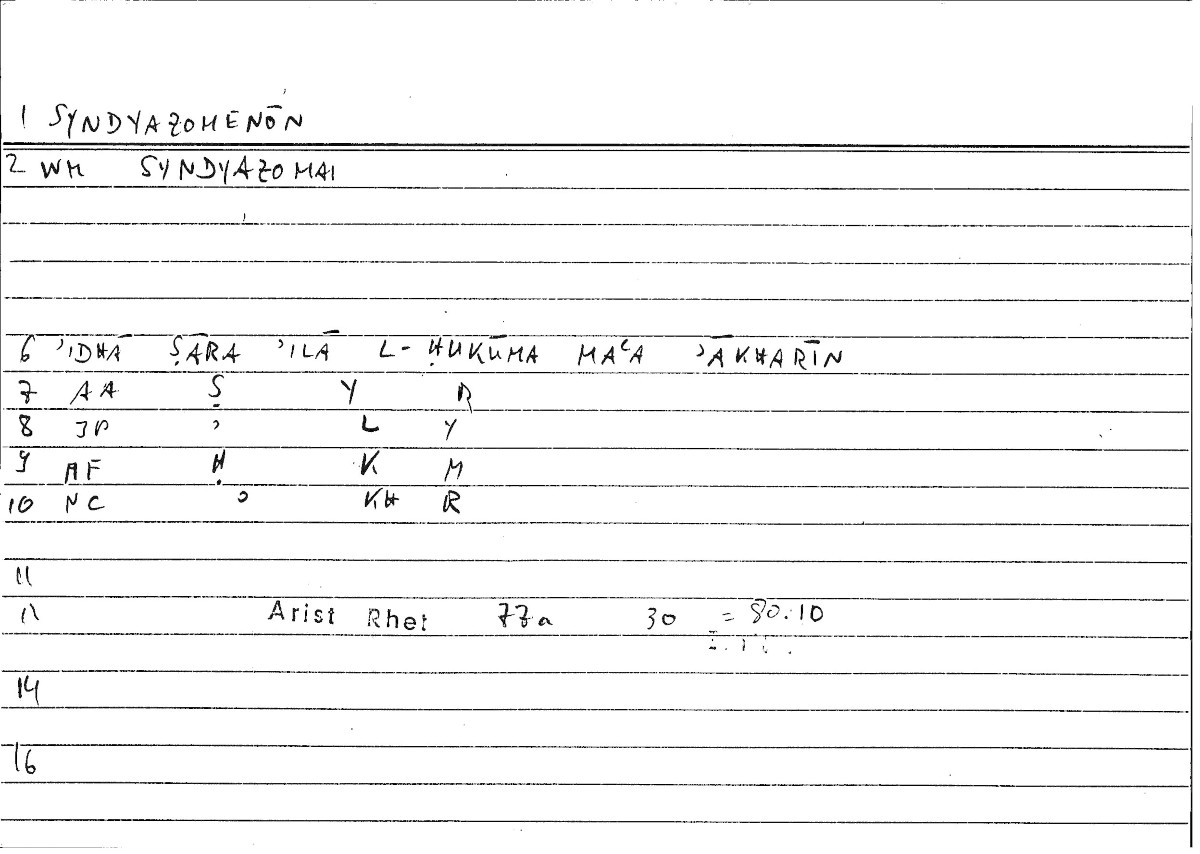 1 SYNDYAZOMENŌN
2 WM SYNDYAZOMAI
6 ʾIDHĀ ṢĀRA ʾILĀ L-ḤUKŪMA MAʿA ʾĀKHARĪN
7 AA Ṣ Y R
8 JP ʾ L Y
9 AF Ḥ K M
10 NC ʾ KH R
11
11 Arist Rhet 77a 30 = 80.10
14
16